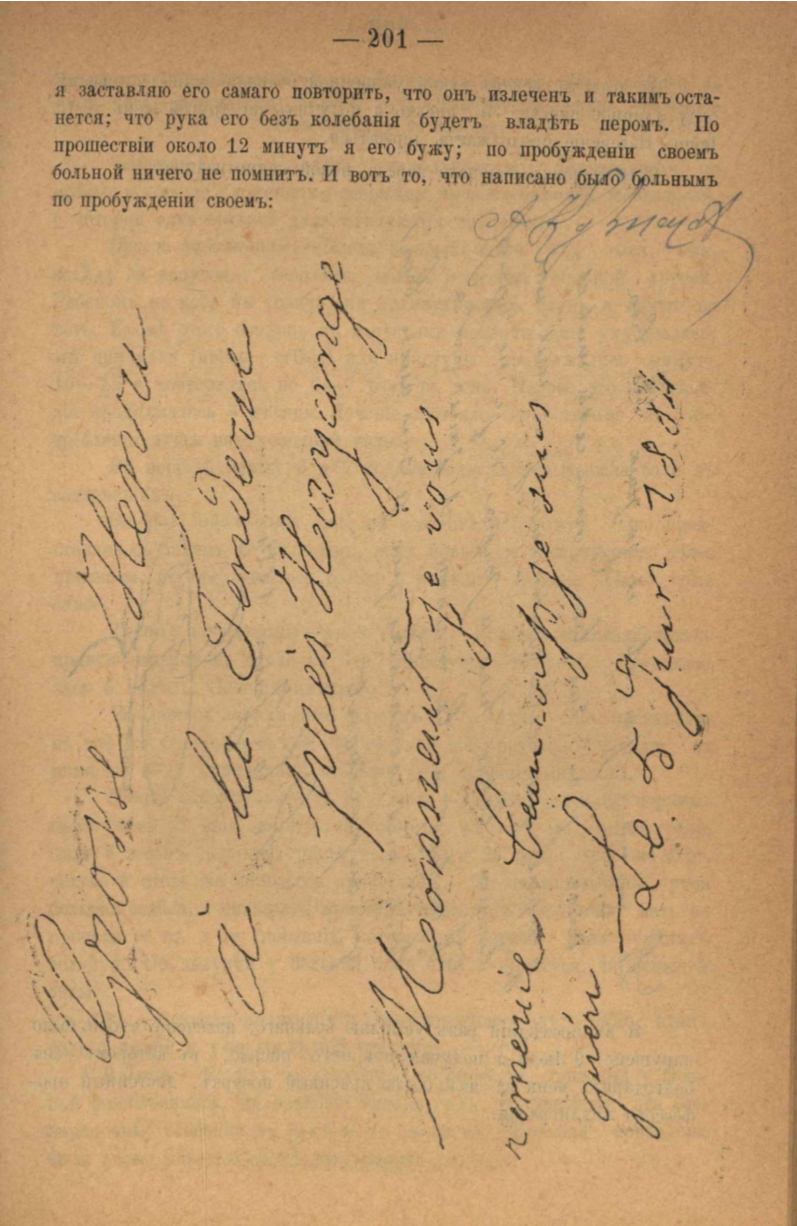 — 201 —
я заставляю его самаго повторить, что онъ излеченъ и такимъ оста-
нется; что рука его безъ колебанія будетъ владѣть перомъ. По
прошествіи около 12 минутъ я его бужу; по пробужденіи своемъ
больной ничего не помнитъ. И вотъ то, что написано было больнымъ
по пробужденіи своемъ:
Grosse Henri
à la Fenderie
près Hayange
Monsieur je vous
remerie beaucoup je suis
guéri
Le 5 Juin 1884